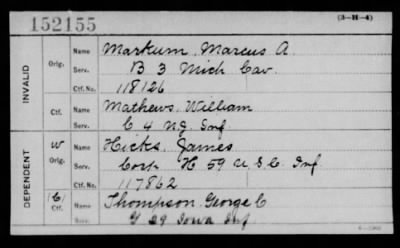 152155
(3-H-4)
INVALID
Orig.
Name Markum, Marcus A.
Serv. B 3 Mich Cav.
Ctf. No. 118126
Ctf.
Name Mathews, William
Serv. C 4 N.J. Inf.
DEPENDENT
W
Orig.
Name Hicks, James
Serv. Corp H 59 U.S.C. Inf
Ctf. No. 117862
C
Ctf.
Name Thompson, George C
Serv. G 29 Iowa Inf